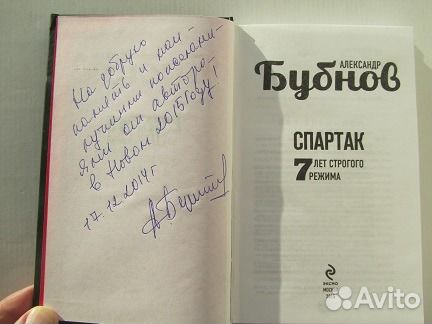 На добрую
память и наи-
лучшими пожелани-
ями от автора
в Новом 2015 году!
17.12.2014 г
АЛЕКСАНДР
Бубнов
СПАРТАК
7 ЛЕТ СТРОГОГО
РЕЖИМА
ЭКСМО
Avito